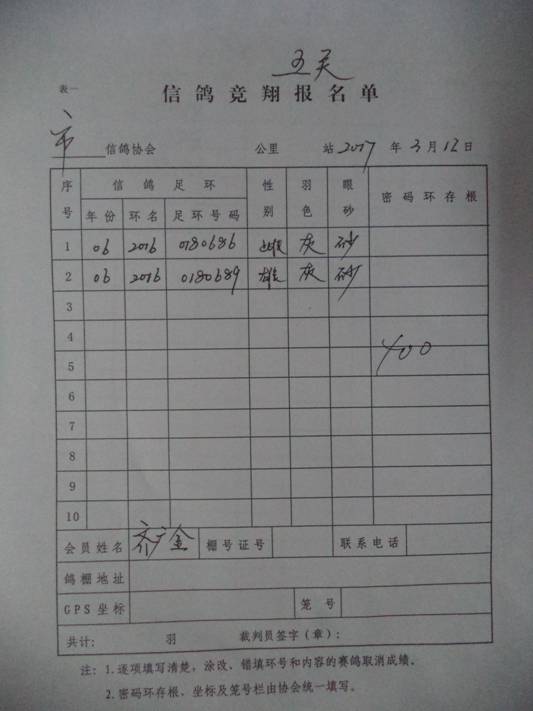 五关
表一
信鸽竞翔报名单
市 信鸽协会 公里 站 2017 年 3 月 12 日
序号 信鸽足环 性别 羽色 眼砂 密码环存根
年份 环名 足环号码
1 06 2016 0180686 雄 灰 砂
2 06 2016 0180689 雄 灰 砂
3
4
400
5
6
7
8
9
10
会员姓名 齐广金 棚号证号 联系电话
鸽棚地址
GPS坐标 笼号
共计: 羽 裁判员签字(章):
注: 1.逐项填写清楚,涂改、错填环号和内容的赛鸽取消成绩。
2.密码环存根、坐标及笼号栏由协会统一填写。